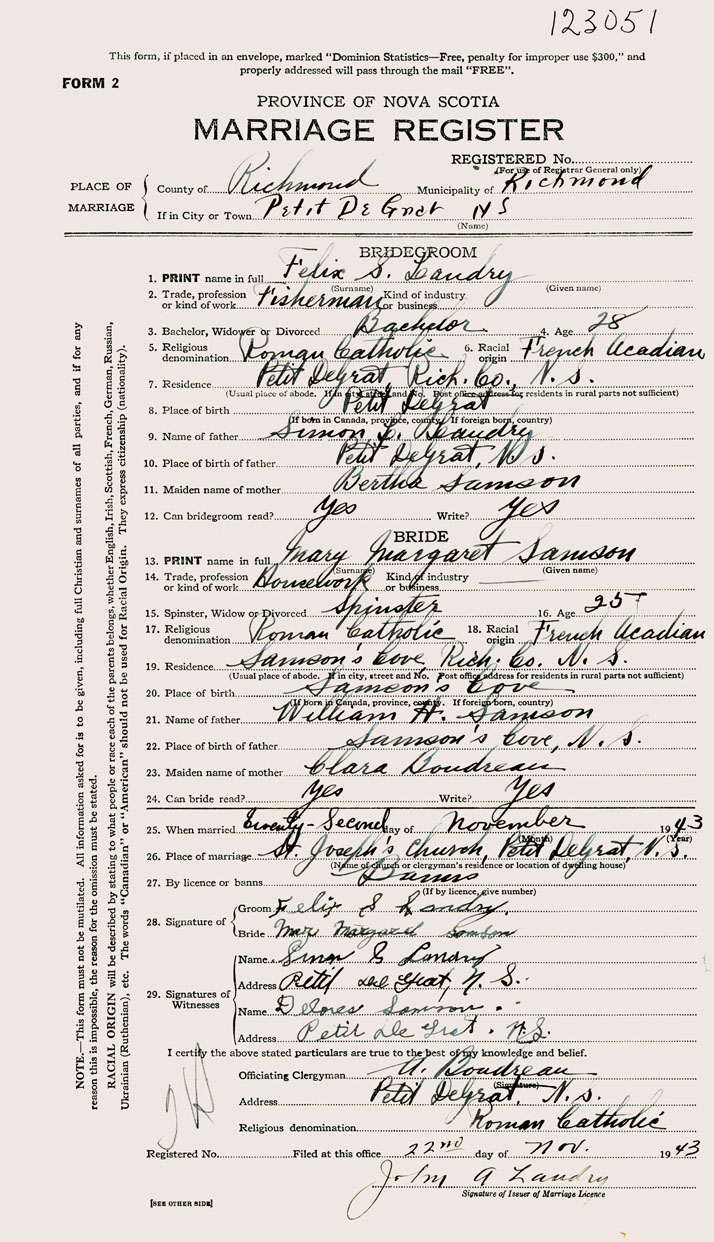 123051
This form, if placed in an envelope, marked "Dominion Statistics—Free, penalty for improper use $300," and
properly addressed will pass through the mail "FREE".
FORM 2
PROVINCE OF NOVA SCOTIA
MARRIAGE REGISTER
REGISTERED No.
(For use of Registrar General only)
PLACE OF MARRIAGE
County of Richmond Municipality of Richmond
If in City or Town Petit De Grat N S
(Name)
BRIDEGROOM
1. PRINT name in full Felix S. Landry
(Surname) (Given name)
2. Trade, profession or kind of work Fisherman Kind of industry or business
3. Bachelor, Widower or Divorced Bachelor 4. Age 28
5. Religious denomination Roman Catholic 6. Racial origin French Acadian
7. Residence Petit Degrat Rich. Co., N. S.
(Usual place of abode. If in city, street and No. Post office address for residents in rural parts not sufficient)
8. Place of birth Petit Degrat
(If born in Canada, province, county. If foreign born, country)
9. Name of father Simon Landry
10. Place of birth of father Petit Degrat, N. S.
11. Maiden name of mother Bertha Samson
12. Can bridegroom read? Yes Write? Yes
BRIDE
13. PRINT name in full Mary Margaret Samson
(Surname) (Given name)
14. Trade, profession or kind of work Housework Kind of industry or business
15. Spinster, Widow or Divorced Spinster 16. Age 25
17. Religious denomination Roman Catholic 18. Racial origin French Acadian
19. Residence Samson's Cove, Rich. Co. N. S.
(Usual place of abode. If in city, street and No. Post office address for residents in rural parts not sufficient)
20. Place of birth Samson's Cove
(If born in Canada, province, county. If foreign born, country)
21. Name of father William H. Samson
22. Place of birth of father Samson's Cove, N. S.
23. Maiden name of mother Clara Boudreau
24. Can bride read? Yes Write? Yes
25. When married twenty-second day of November 1943
(Month) (Year)
26. Place of marriage St Joseph's Church, Petit Degrat, N. S.
(Name of church or clergyman's residence or location of dwelling house)
27. By licence or banns Banns
(If by licence, give number)
28. Signature of
Groom Felix S Landry
Bride Mary Margaret Samson
29. Signatures of Witnesses
Name Simon Landry
Address Petit de Grat, N. S.
Name Delores Samson
Address Petit De Grat. N.S.
I certify the above stated particulars are true to the best of my knowledge and belief.
Officiating Clergyman Boudreau
(Signature)
Address Petit Degrat, N. S.
Religious denomination Roman Catholic
Registered No. Filed at this office 22nd day of Nov. 1943
John A Landry
Signature of Issuer of Marriage Licence
[SEE OTHER SIDE]
NOTE.—This form must not be mutilated. All information asked for is to be given, including full Christian and surnames of all parties, and if for any
reason this is impossible, the reason for the omission must be stated.
RACIAL ORIGIN will be described by stating to what people or race each of the parents belongs, whether English, Irish, Scottish, French, German, Russian,
Ukrainian (Ruthenian), etc. The words "Canadian" or "American" should not be used for Racial Origin. They express citizenship (nationality).